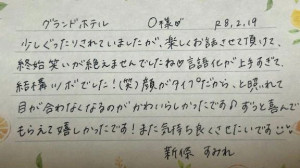 グランドホテル 〇様♡ R8.2.19
少しぐったりされていましたが、楽しくお話させて頂けて、
終始笑いが絶えませんでしたね 言語化が上手すぎて、
結構ツボでした!(笑) 顔がタイプだから、と照れて
目が合わなくなるのがかわいらしかったです♪ずっと喜んで
もらえて嬉しかったです!また気持ち良くさせたいです
新條 すみれ